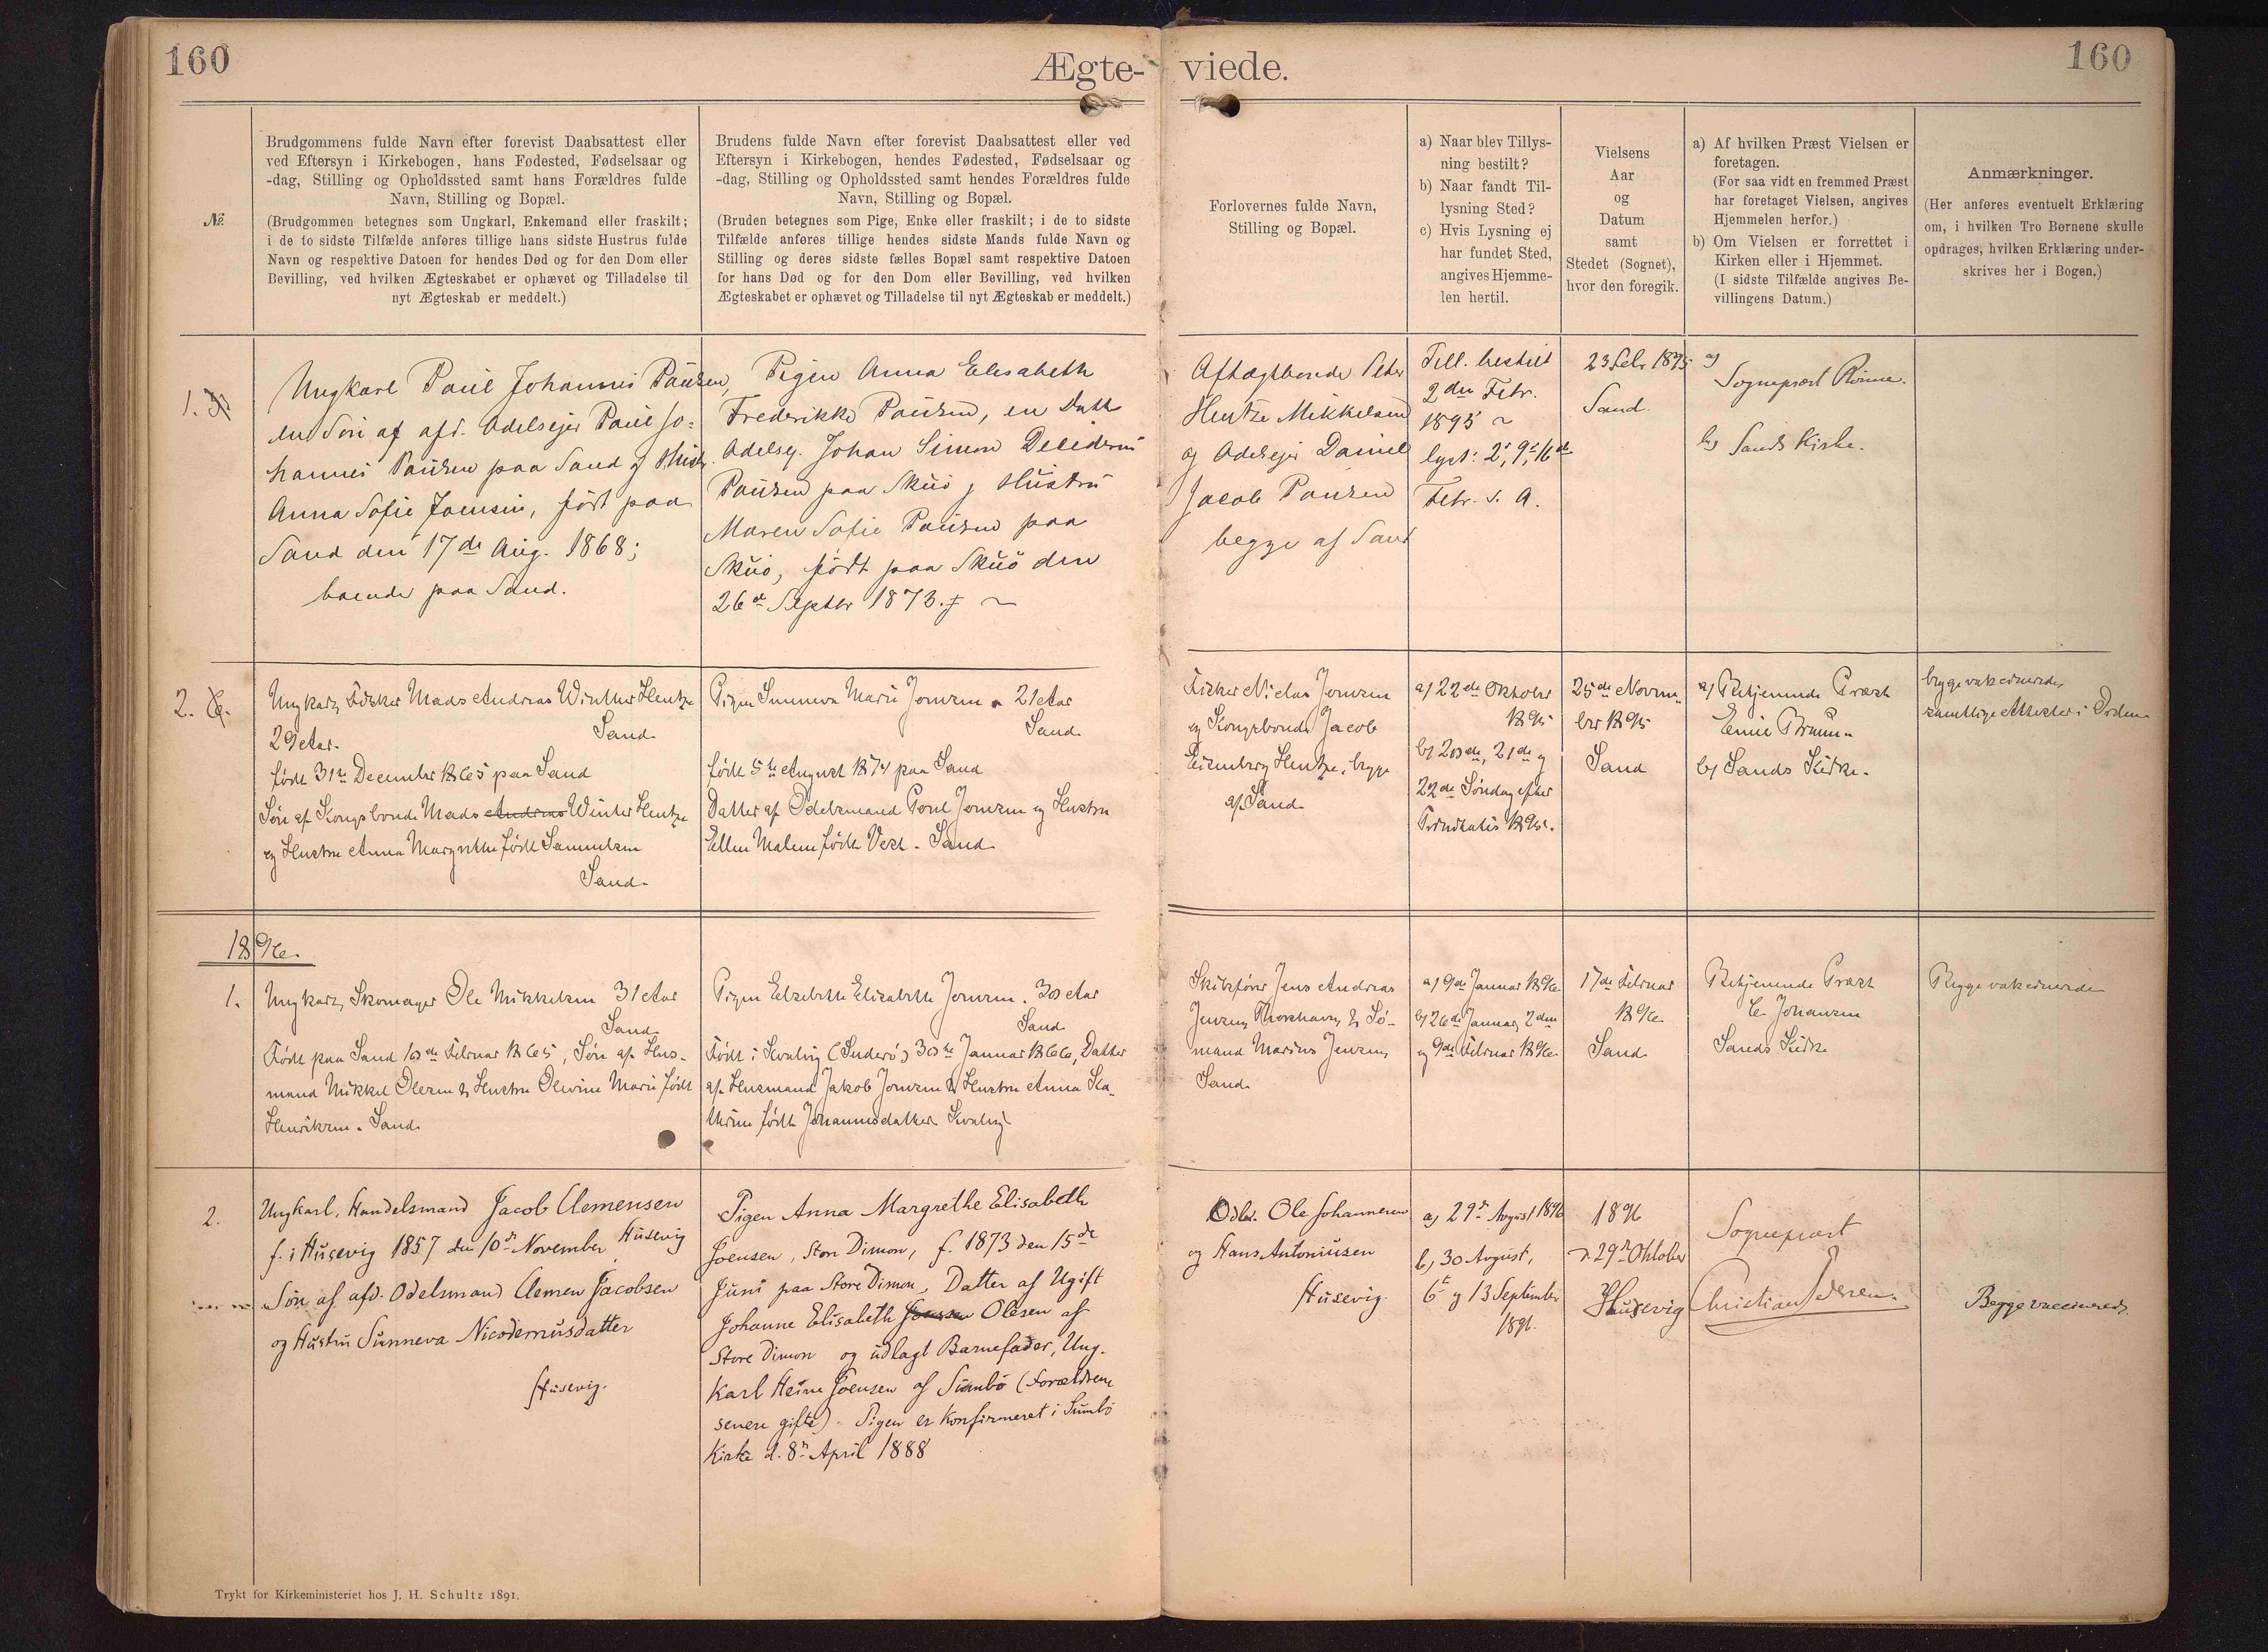 160
Ægte-
viede.
160
№
Brudgommens fulde Navn efter forevist Daabsattest eller
ved Eftersyn i Kirkebogen, hans Fødested, Fødselsaar og
-dag, Stilling og Opholdssted samt hans Forældres fulde
Navn, Stilling og Bopæl.
(Brudgommen betegnes som Ungkarl, Enkemand eller fraskilt;
i de to sidste Tilfælde anføres tillige hans sidste Hustrus fulde
Navn og respektive Datoen for hendes Død og for den Dom eller
Bevilling, ved hvilken Ægteskabet er ophævet og Tilladelse til
nyt Ægteskab er meddelt.)
Brudens fulde Navn efter forevist Daabsattest eller ved
Eftersyn i Kirkebogen, hendes Fødested, Fødselsaar og
-dag, Stilling og Opholdssted samt hendes Forældres fulde
Navn, Stilling og Bopæl.
(Bruden betegnes som Pige, Enke eller fraskilt; i de to sidste
Tilfælde anføres tillige hendes sidste Mands fulde Navn og
Stilling og deres sidste fælles Bopæl samt respektive Datoen
for hans Død og for den Dom eller Bevilling, ved hvilken
Ægteskabet er ophævet og Tilladelse til nyt Ægteskab er meddelt.)
Forlovernes fulde Navn,
Stilling og Bopæl.
a) Naar blev Tillys-
ning bestilt?
b) Naar fandt Til-
lysning Sted?
c) Hvis Lysning ej
har fundet Sted,
angives Hjemme-
len hertil.
Vielsens
Aar
og
Datum
samt
Stedet (Sognet),
hvor den foregik.
a) Af hvilken Præst Vielsen er
foretagen.
(For saa vidt en fremmed Præst
har foretaget Vielsen, angives
Hjemmelen herfor.)
b) Om Vielsen er forrettet i
Kirken eller i Hjemmet.
(I sidste Tilfælde angives Be-
villingens Datum.)
Anmærkninger.
(Her anføres eventuelt Erklæring
om, i hvilken Tro Børnene skulle
opdrages, hvilken Erklæring under-
skrives her i Bogen.)
1.
Ungkarl Poul Johannis Poulsen,
en Søn af afd. Odelsejer Poul Jo=
hannis Poulsen paa Sand og Hustr.
Anna Sofie Joensen, født paa
Sand den 17de Aug. 1868;
boende paa Sand.
Pigen Anna Elisabeth
Frederikke Poulsen, en Datt
Odelsej. Johan Simon
Poulsen paa Skuø og Hustru
Maren Sofie Poulsen paa
Skuö, født paa Skuö den
26de Septbr 1873.
Aftægtbonde Peter
Hentze Mikkelsen
og Odelsejer Daniel
Jacob Poulsen
begge af Sand
Till. bestilt
2den Febr.
1895
lyst: 2', 9', 16de
Febr. s. A.
23 Febr 1895
Sand.
a)
Sognepræst
b) Sands Kirke.
2.
Ungkarl, Fisker Mads Andreas Winther Hentze
29 Aar.
Sand
født 31te December 1865 paa Sand
Søn af Kongsbonde Mads Andreas Winther Hentze
og Hustru Anna Margrethe født Samuelsen
Sand.
Pigen Sunneva Marie Joensen 21 Aar
Sand
født 5te August 1874 paa Sand
Datter af Odelsmand Poul Joensen og Hustru
Ellen Malene født Vest. Sand
Fisker Niclas Joensen
og Kongsbonde Jacob
Hentze, begge
af Sand
a) 22de Oktober
1895
b) 20de, 21de og
22de Søndag efter
Trinitatis 1895.
25de Novem
ber 1895
Sand
a) Betjenende Præst
Emil Bruun
b) Sands Kirke.
begge vakcinerede,
samtlige Attester i Orden
1896.
1.
Ungkarl, Skomager Ole Mikkelsen 31 Aar
Sand.
Født paa Sand 10de Februar 1865, Søn af Hus-
mand Mikkel Olesen & Hustru Olevine Marie født
Henriksen. Sand
Pigen Elsebeth Elisabeth Joensen. 30 Aar
Sand
Født i Kvalvig (Suderø) 30te Januar 1866, Datter
af Husmand Jakob Joensen & Hustru Anna Ka-
thrine født Johannesdatter Kvalvig
Skibsfører Jens Andreas
Jensen, Thorshavn & Sø-
mand Marius Jensen,
Sand
a) 9de Januar 1896
b) 26de Januar, 2den
og 9de Februar 1896
17de Februar
1896
Sand
Betjenende Præst
E. Johansen
Sands Kirke
Begge vakcinerede
2.
Ungkarl, Handelsmand Jacob Clemensen
f. i Husevig 1857 den 10de November, Husevig
Søn af afd. Odelsmand Clemen Jacobsen
og Hustru Sunneva Nicodemusdatter
Husevig.
Pigen Anna Margrethe Elisabeth
Joensen, Store Dimon, f. 1873 den 15de
Juni paa Store Dimon, Datter af Ugift
Johanne Elisabeth Joensen Olesen af
Store Dimon og udlagt Barnefader, Ung-
karl Heine Joensen af Sumbø (Forældrene
senere gifte). Pigen er Konfirmeret i Sumbø
Kirke d. 8n April 1888
Odbd. Ole Johannesen
og Hans Antoniusen
Husevig.
a) 29n August 1896
b) 30 August,
6te og 13 September
1896.
1896
d. 29n Oktober
Husevig
Sognepræst
Christian Pedersen.
Begge vaccinerede
Trykt for Kirkeministeriet hos J. H. Schultz 1891.